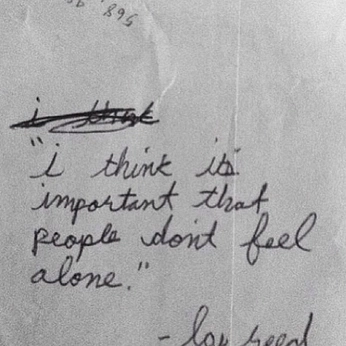 568
i think
"i think its
important that
people don't feel
alone."
- lou reed